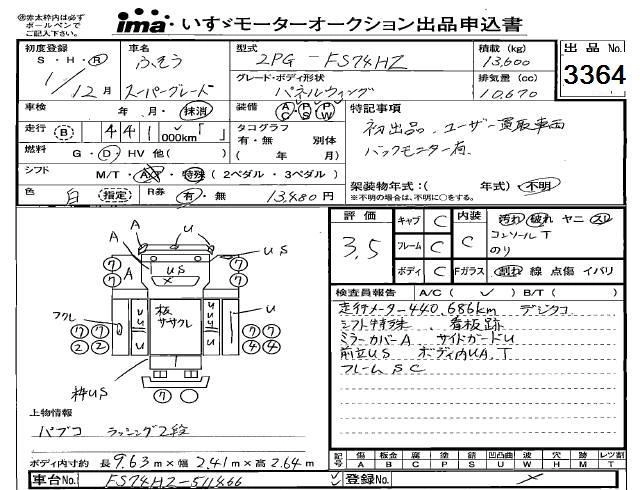 ※赤太枠内は必ず
ボールペンで
ご記入下さい。
ima いすゞモーターオークション出品申込書
初度登録
S・H・R
1/12月
車名
ふそう
スーパーグレート
型式
2PG-FS74HZ
グレード・ボディ形状
パネルウィング
積載(kg)
13,600
排気量(cc)
10,670
出品No.
3364
車検 年・月・抹消
装備 AC PS PW
走行 B 441,000km「 」
タコグラフ
有・無 別体
( 年 月)
燃料 G・D・HV 他( )
シフト M/T・A/T・特殊(2ペダル・3ペダル)
色 白 指定 R券 有・無 13,480円
特記事項
初出品、ユーザー買取車両
バックモニター有、
架装物年式:( 年式)・不明
※不明の場合は、不明に○をする。
評価
3.5
キャブ C
フレーム C
ボディ C
内装 C
Fガラス
汚れ 破れ ヤニ スレ
コンソールT
のり
割れ 線 点傷 イバリ
検査員報告 A/C( ✓ ) B/T( )
走行メーター440,686km デジタコ
シフト特殊、看板跡
ミラーカバーA サイドガードU
前立US ボディ内UA,T
フレームSC
A
A
U
US
A
US
フクレ
板
ササクレ
U
UUU
UUU
枠US
7
7
7
7
7
7
2
2
7
7
4
4
7
上物情報
パブコ ラッシング2段
ボディ内寸約 長9.63m×幅2.41m×高2.64m
記号 傷A 板金B 腐C 塗P 錆S 凹凸曲U 波W 穴H 跡M レンズ割T
車台No. FS74HZ-511466
登録No.